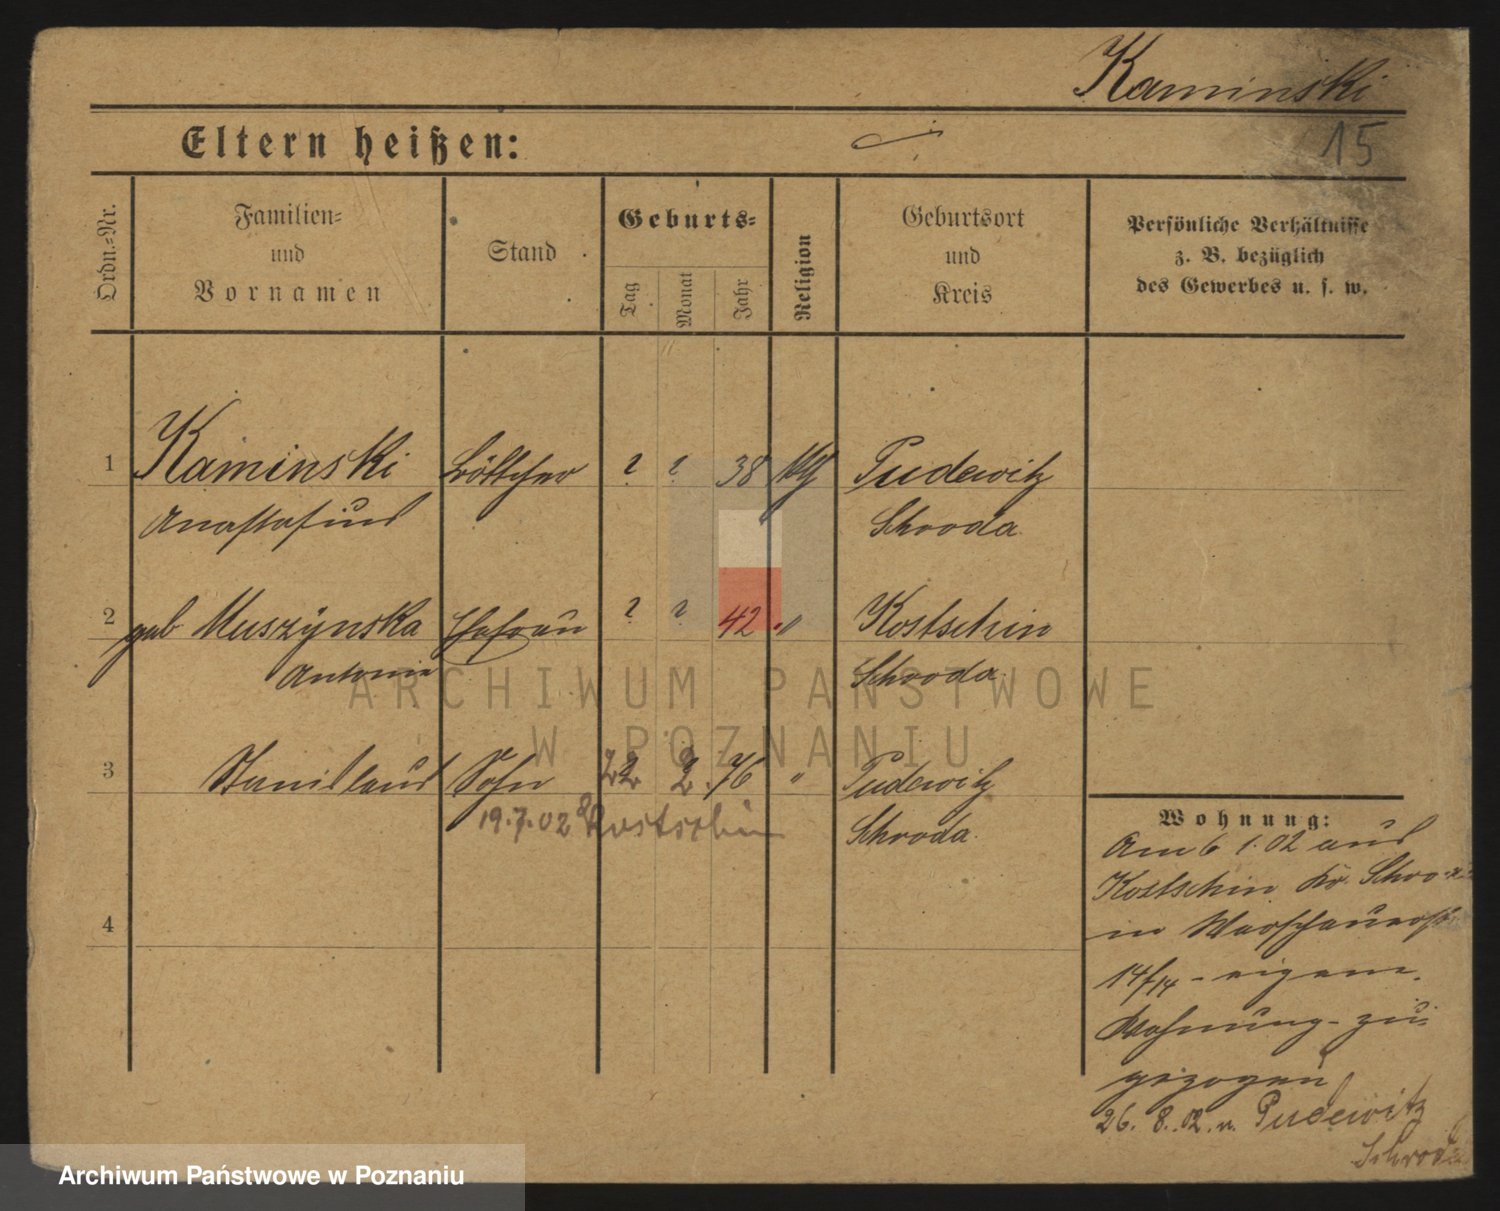 Kaminski
Eltern heißen:
15
Ordn.-Nr.
Familien-
und
Vornamen
Stand
Geburts-
Tag
Monat
Jahr
Religion
Geburtsort
und
Kreis
Persönliche Verhältnisse
z. B. bezüglich
des Gewerbes u. s. w.
1 Kaminski Böttcher ? ? 38 Pudewitz
Anastasius Schroda
2 geb Muszÿnska Ehefrau ? ? 42 " Kostschin
Antonie Schroda
ARCHIWUM PAŃSTWOWE
W POZNANIU
3 Stanislaus Sohn 22 2. 76 " Pudewitz
19.7.02 Kostschin
Schroda.
4
Wohnung:
Am 6 1. 02 aus
Kostschin Kr. Schroda
in Warschauerstr
14/14 - eigene
Wohnung - zu-
gezogen
26. 8. 02. n. Pudewitz
Schroda
Archiwum Państwowe w Poznaniu